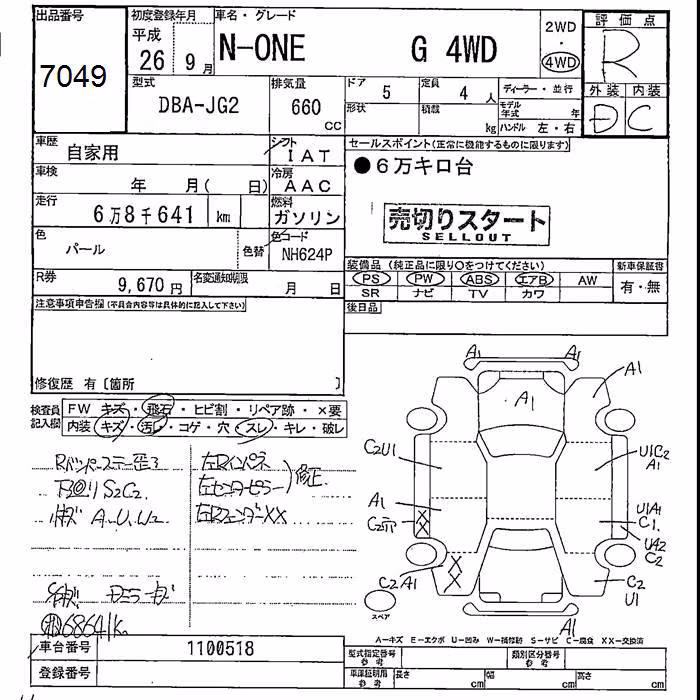 出品番号
7049
初度登録年月
平成
26年 9月
車名・グレード
N-ONE G 4WD
2WD
・
4WD
評価点
R
外装 内装
D C
型式
DBA-JG2
排気量
660
cc
ドア 5
定員 4 人
形状
積載 kg
ディーラー・並行
モデル年式 年
ハンドル 左・右
車歴
自家用
シフト
IAT
車検
年 月( 日)
冷房
AAC
走行
6万8千641 km
燃料
ガソリン
色
パール
色替
色コード
NH624P
R券
9,670円
名変通知期限
月 日
セールスポイント(正常に機能するものに限ります)
●6万キロ台
売切りスタート
SELLOUT
装備品(純正品に限り○をつけてください)
新車保証書
PS PW ABS エアB AW
SR ナビ TV カワ
有・無
後日品
注意事項申告欄(不具合内容等は具体的に記入して下さい)
修復歴 有〔箇所 〕
検査員
記入欄
FW キズ・飛石・ヒビ割・リペア跡・×要
内装 キズ・汚レ・コゲ・穴・スレ・キレ・破レ
Rバンパーステー歪ミ
下回リS2C2
A.U.W2
左Rインパネ
左センターピラー
修正
左RフェンダーXX
68641K
A1 A1
A1
A1
C2U1
U1C2
A1
A1
U1A1
C1
UA2
C2
C2A1
C2
U1
A1
スペア
A-キズ E-エクボ U-凹み W-補修跡 S-サビ C-腐食 XX-交換済
車台番号 1100518
登録番号
型式指定番号
参考
類別区分番号
参考
車庫証明用
参考
長さ cm 幅 cm 高さ cm